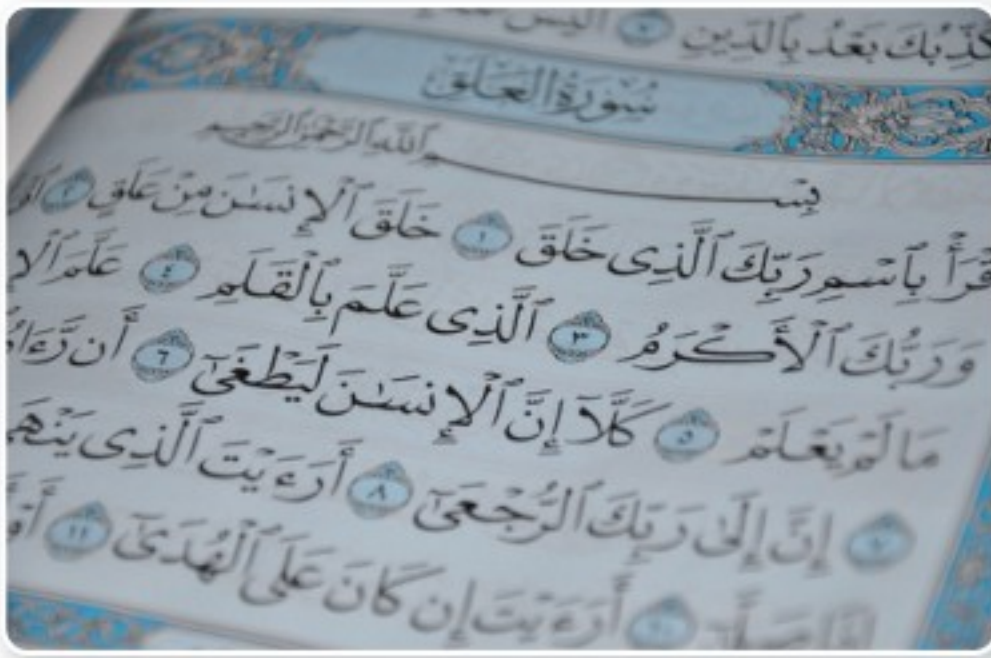 يُكَذِّبُكَ بَعْدُ بِٱلدِّينِ ٧ أَلَيْسَ
سُورَةُ العَلَقِ
بِسْمِ ٱللَّهِ ٱلرَّحْمَٰنِ ٱلرَّحِيمِ
ٱقْرَأْ بِٱسْمِ رَبِّكَ ٱلَّذِى خَلَقَ ١ خَلَقَ ٱلْإِنسَٰنَ مِنْ عَلَقٍ ٢
وَرَبُّكَ ٱلْأَكْرَمُ ٣ ٱلَّذِى عَلَّمَ بِٱلْقَلَمِ ٤ عَلَّمَ ٱلْإِ
مَا لَمْ يَعْلَمْ ٥ كَلَّآ إِنَّ ٱلْإِنسَٰنَ لَيَطْغَىٰٓ ٦ أَن رَّءَا
٧ إِنَّ إِلَىٰ رَبِّكَ ٱلرُّجْعَىٰٓ ٨ أَرَءَيْتَ ٱلَّذِى يَنْهَ
إِذَا صَلَّىٰٓ ١٠ أَرَءَيْتَ إِن كَانَ عَلَى ٱلْهُدَىٰٓ ١١ أَوْ